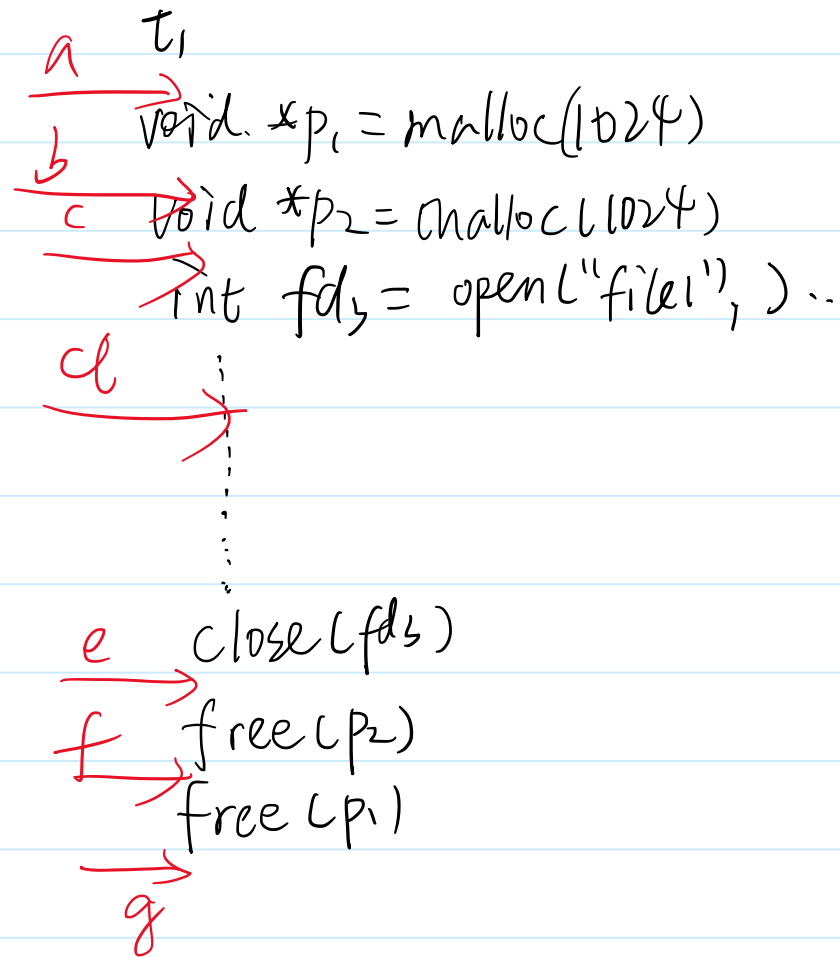 t1
a
void *p1 = malloc(1024)
b
void *p2 = malloc(1024)
c
int fd3 = open("file1", ) ..
d
close(fd3)
e
free(p2)
f
free(p1)
g